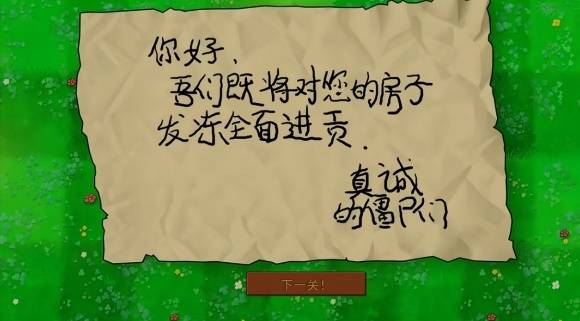 你好，
吾们既将对您的房子
发冻全面进贡.
真诚
的僵尸们
下一关!